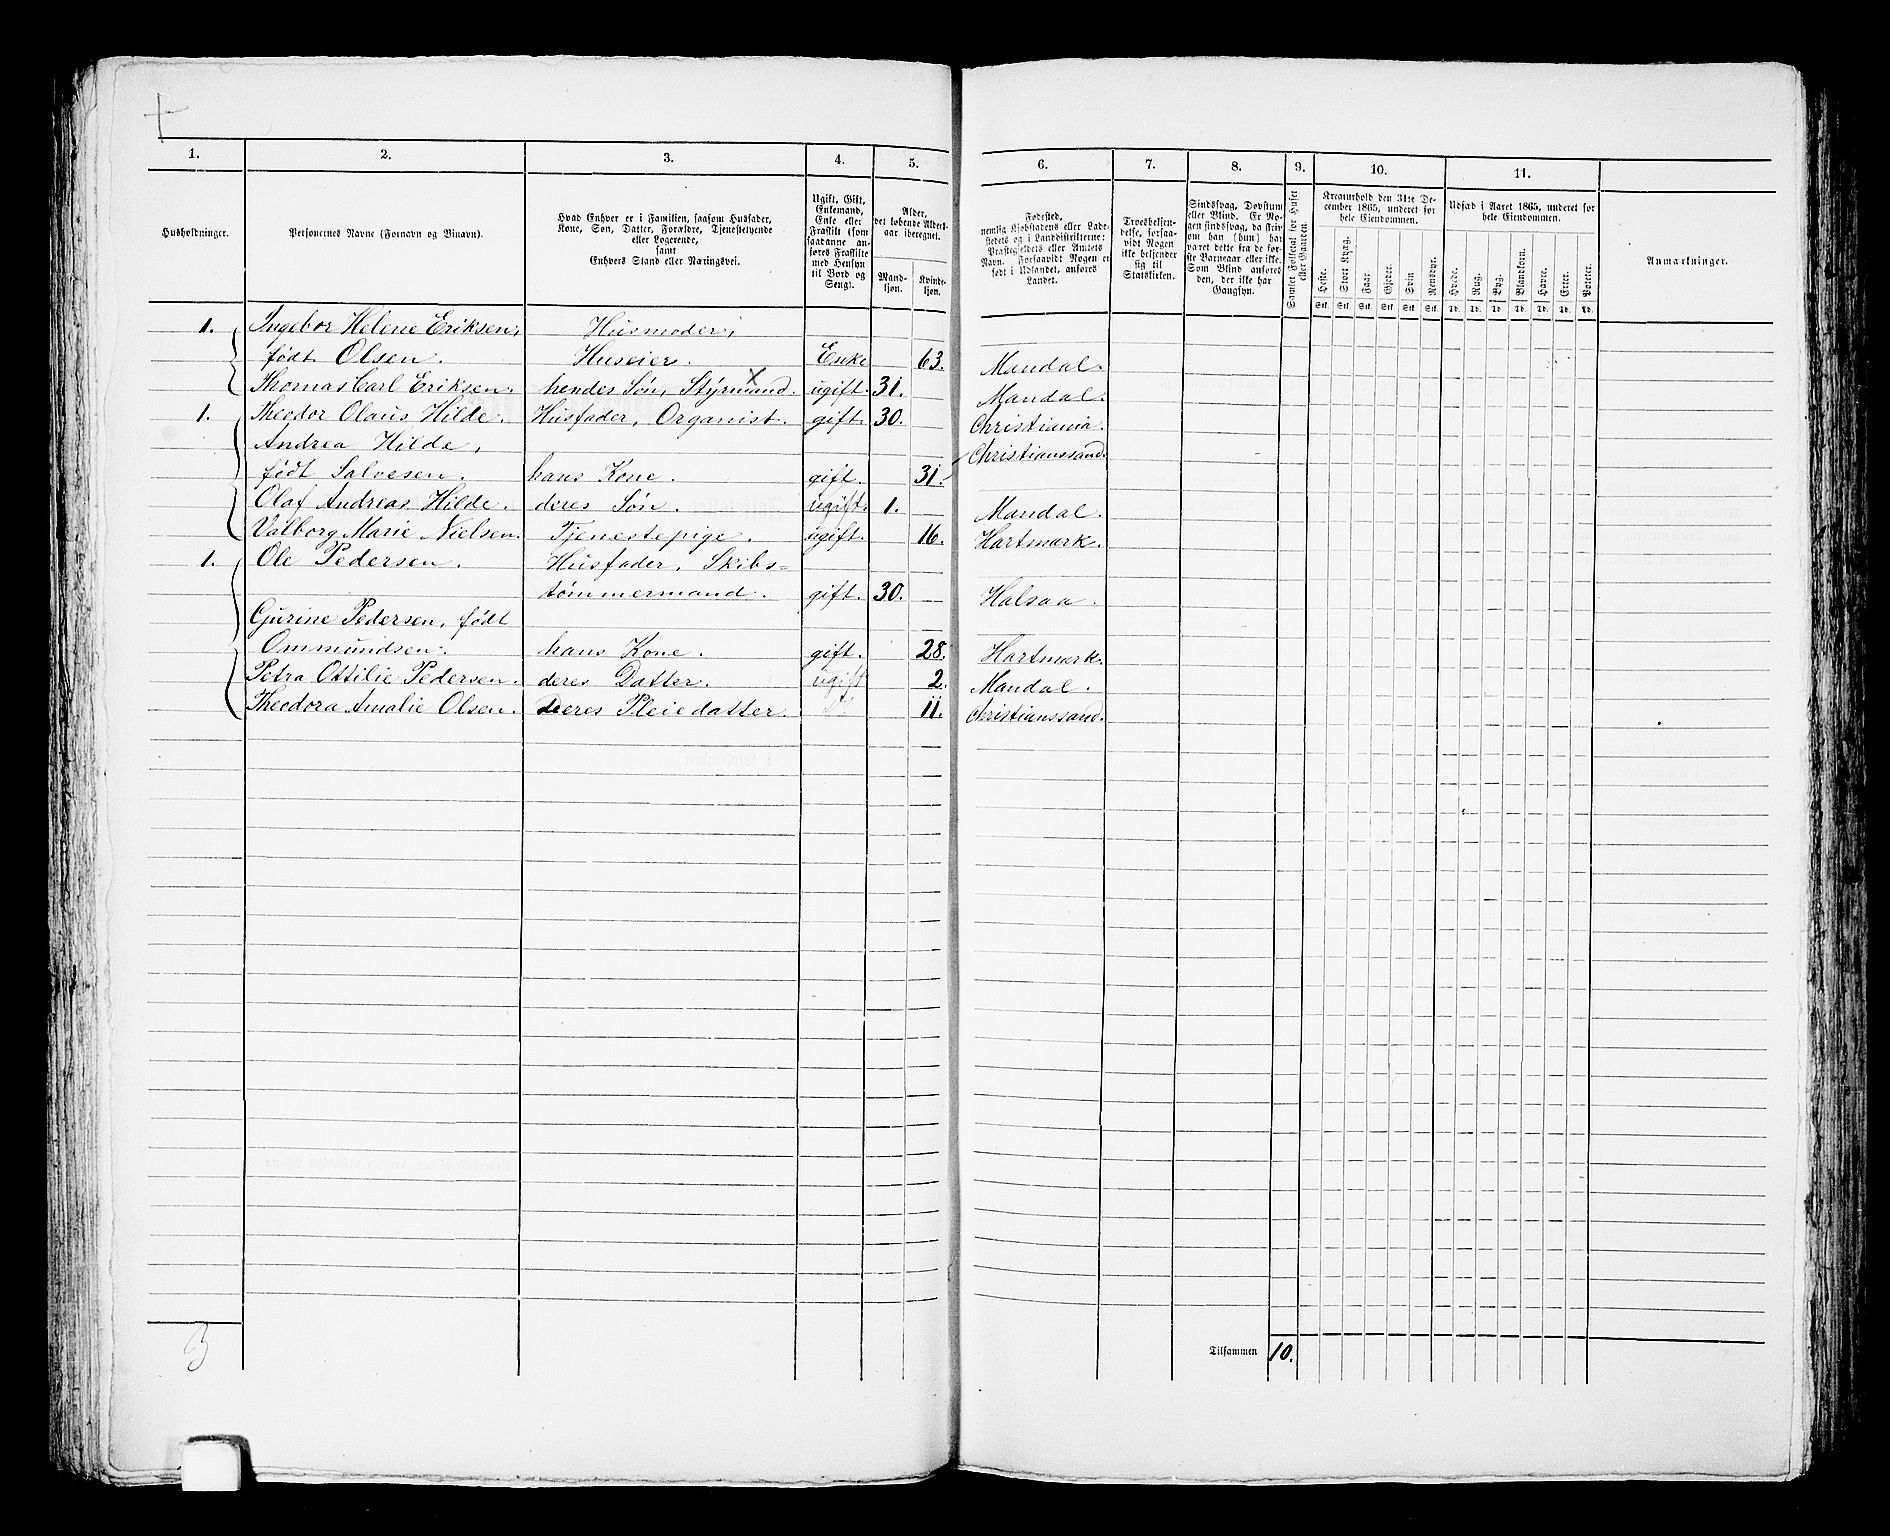 1. 2. 3. 4. 5. 6. 7. 8. 9. 10. 11.
Husholdninger.
Personernes Navne (Fornavn og Tilnavn).
Hvad Enhver er i Familien, saasom Husfader,
Kone, Søn, Datter, Forældre, Tjenestetyende
eller Logerende,
samt
Enhvers Stand eller Næringsvei.
Ugift, Gift,
Enkemand,
Enke eller
Fraskilt (som
saadanne an-
føres Fraskilte
med Hensyn
til Bord og
Seng).
Alder,
det løbende Alders-
aar iberegnet.
Mand-
kjøn.
Kvinde-
kjøn.
Fødested,
nemlig Kjøbstadens eller Lade-
stedets og i Landdistrikterne:
Præstegjeldets eller Amtets
Navn. Forsaavidt Nogen er
født i Udlandet, anføres
Landet.
Troesbekjen-
delse, forsaa-
vidt Nogen
ikke bekjender
sig til
Statskirken.
Sindssvag, Døvstum
eller Blind. Er No-
gen sindssvag, da skriv
om han (hun) har
været dette fra de før-
ste Barneaar eller ikke.
Som Blind anføres
den, der ikke har
Gangsyn.
Samlet Folketal for Huset
eller Gaarden.
Kreaturhold den 31te De-
cember 1865, underet for
hele Eiendommen.
Heste. Stort Kvæg. Faar. Gjeder. Svin Rensdyr.
Stk. Stk. Stk. Stk. Stk. Stk.
Udsæd i Aaret 1865, underet for
hele Eiendommen.
Hvede. Rug. Byg. Blandkorn. Havre. Erter. Poteter.
Td. Td. Td. Td. Td. Td. Td.
Anmærkninger.
1. Ingebor Helene Eriksen, Husmoder,
født Olsen. Huseier. Enke 63. Mandal.
Thomas Carl Eriksen. hendes Søn, Styrmand. ugift. 31. Mandal.
1. Theodor Olaus Hilde. Husfader, Organist. gift. 30. Christiania.
Andrea Hilde, Christianssand.
født Salvesen. hans Kone. gift. 31.
Olaf Andreas Hilde. deres Søn. ugift. 1. Mandal.
Valborg Marie Nielsen. Tjenestepige. ugift. 16. Hartmark.
1. Ole Pedersen. Husfader, Skibs=
tømmermand. gift. 30. Halsaa.
Gurine Pedersen, født
Ommundsen. hans Kone. gift. 28. Hartmark.
Petra Ottilie Pedersen. deres Datter. ugift 2. Mandal.
Theodora Amalie Olsen. Deres Pleiedatter. 11. Christianssand.
3
Tilsammen 10.